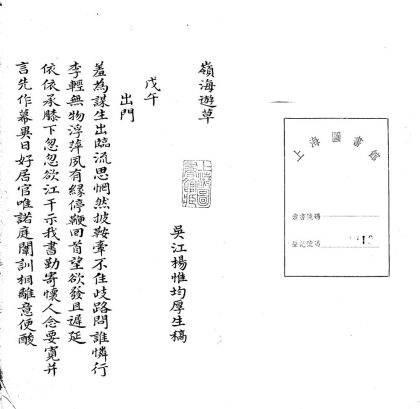 上海圖書館
索書號碼
登記號碼
嶺海遊草
吳江楊惟均厚生稿
上海圖書館藏
戊午
出門
羞為謀生出臨流思惘然披鞍牽不住歧路問誰憐行
李輕無物浮萍夙有緣停鞭回首望欲發且遲延
依依承膝下忽忽欲江干示我書勤寄懷人念要寬并
言先作幕異日好居官唯諾庭闈訓相離意便酸